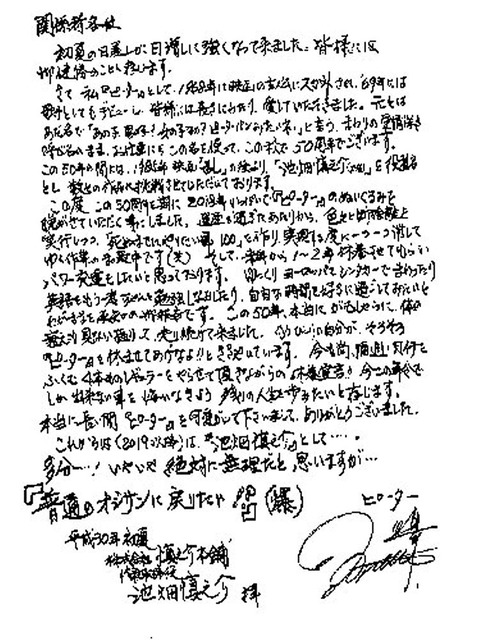 関係者各位
初夏の日差しが日増しに強くなって来ました。皆様には
御健勝のことと存じます。
さて 私「ピーター」として、1968年に映画の主人公にスカウトされ、'69年には
歌手としてもデビューし、皆様には長きにわたり、愛していただきました。元々は
あだ名で「あの子男の子?女の子なの?ピーターパンみたいネ!」と言う、まわりの愛情
呼び名のまま、お仕事にもこの名を使って、この秋で50周年でございます。
この50年の間には、1985年 映画「乱」の 「池畑慎之介」を役者名
とし、数々の作品に挑戦させていただいております。
この度 この50周年を期に 2018年いっぱいで「ピーター」のぬいぐるみを
脱がせていただく事にしました。還暦を過ぎたあたりから、色々と
実行しつつ、死ぬまでにやりたい事100を作り、実現する度に一つ一つ消して
ゆく作業の真最中です(笑) そして、来年から1〜2年 休養させてもらい
パワー充電をしたいと思っております。ゆっくりヨーロッパやシンガポールで
英語をもう一度 勉強しなおしたり、自由な時間を好きに過ごしてみたいと
です。この50年、本当にがむしゃらに、
走り続けて来ました。 自分が、そろそろ
「ピーター」を休ませてあげなよ!!とささやいています。今も尚
ふくむ 4本ものレギュラーをやらせて頂きながらの「休養宣言!!」今この年令で
しか出来ない事を 悔いなきよう 残りの人生を歩みたいと存じます。
本当に長い間「ピーター」を可愛がって下さいまして、ありがとうございました。
これからは(2019以降)は、「池畑慎之介」として…。
多分…! いやいや 絶対に無理だと思いますが…
『普通のオジサンに戻りたい!!』(爆)
平成30年初夏
株式会社 慎之介本舗
代表取締役
池畑慎之介 拝
ピーター